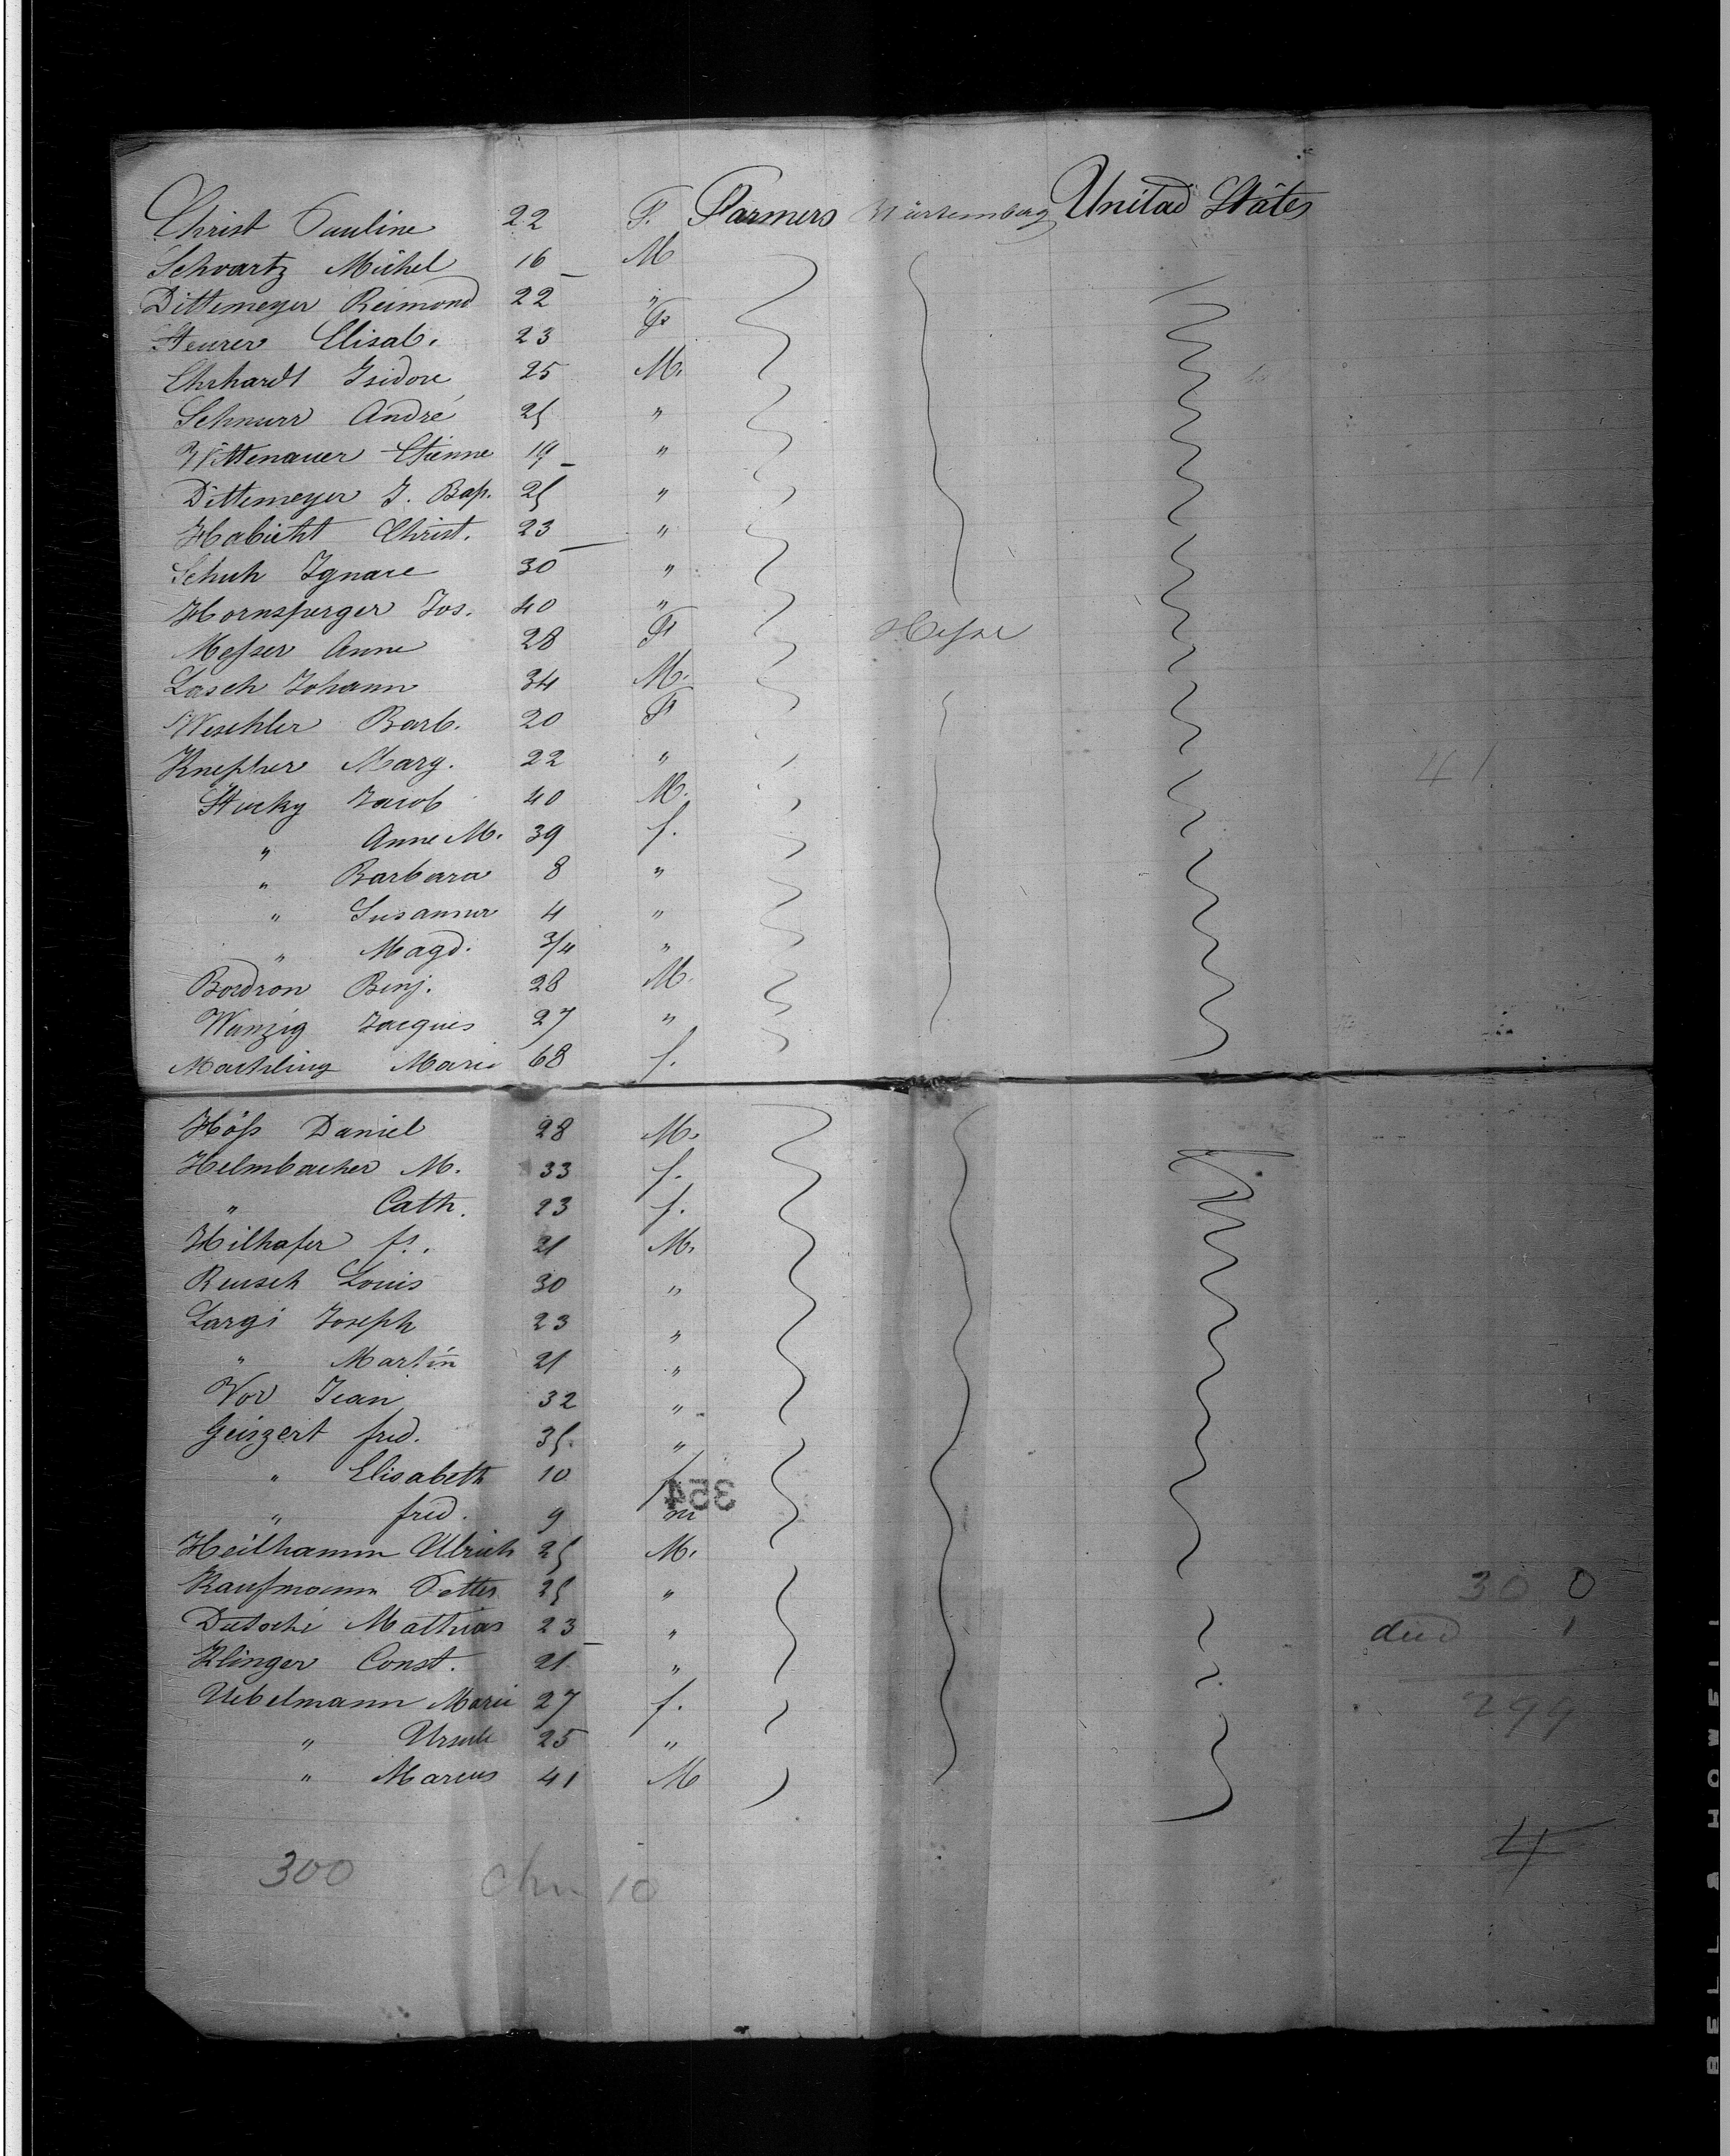 Christ Pauline 22 F. Farmers Würtemberg Unitad States
Schvartz Michel 16 M
Dittemeyer Reimond 22 "
Steurer Elisab. 23 F
Ehrhardt Isidore 25 M.
Schnurr André 25 "
Wittenauer Etienne 19 "
Dittemeyer J. Bap. 25 "
Habicht Christ. 23 "
Schuh Ignace 30 "
Hornsperger Jos. 40 "
Messer Anne 28 F Hesse
Lasch Johann 34 M.
Weschler Barb. 20 F
Knepher Marg. 22 "
41
Stucky Jacob 40 M.
" Anne M. 39 f.
" Barbara 8 "
" Susanna 4 "
" Magd. 3/4 "
Bordron Benj. 28 M.
Wanzig Jacques 27 "
Maechling Marie 68 f.
Höss Daniel 28 M.
Helmbacher M. 33 f.
" Cath. 23 f.
Hilhafer fr. 21 M.
Reusch Louis 30 "
Largi Joseph 23 "
" Martin 21 "
Vor Jean 32 "
Geiszert fred. 35. "
" Elisabeth 10 f.
354
" fred. 9 m
Heilhamm Ulrich 25 M.
Kaufmann Petter 25 " 30 0
Dutochi Mathias 23 " died 1
Klinger Const. 21 "
Uebelmann Marie 27 f. 299
" Ursule 25 "
" Marcus 41 M
4
300 chn 10
BELL & HOWELL